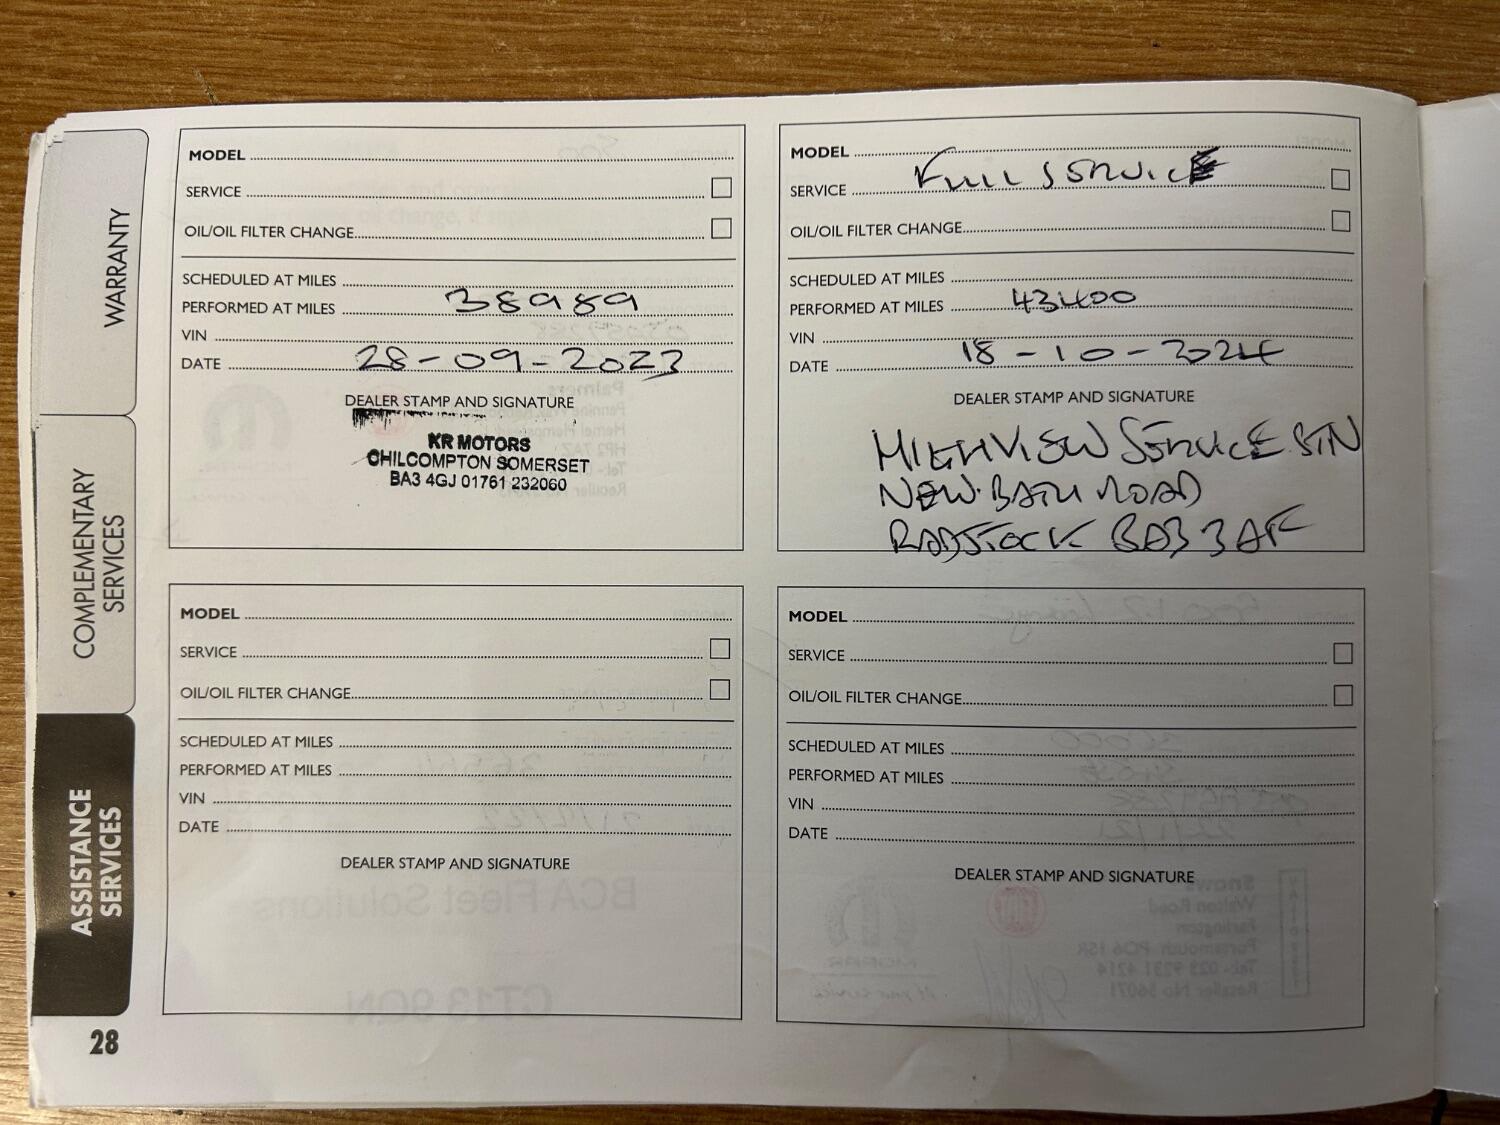 WARRANTY
COMPLEMENTARY
SERVICES
ASSISTANCE
SERVICES
28
MODEL
SERVICE
OIL/OIL FILTER CHANGE
SCHEDULED AT MILES
PERFORMED AT MILES 38989
VIN
DATE 28-09-2023
DEALER STAMP AND SIGNATURE
KR MOTORS
CHILCOMPTON SOMERSET
BA3 4GJ 01761 232060
MODEL
SERVICE FULL SERVICE
OIL/OIL FILTER CHANGE
SCHEDULED AT MILES
PERFORMED AT MILES 43400
VIN
DATE 18-10-2024
DEALER STAMP AND SIGNATURE
HIGHVIEW SERVICE STN
NEW BATH ROAD
RADSTOCK BA3 3AF
MODEL
SERVICE
OIL/OIL FILTER CHANGE
SCHEDULED AT MILES
PERFORMED AT MILES
VIN
DATE
DEALER STAMP AND SIGNATURE
MODEL
SERVICE
OIL/OIL FILTER CHANGE
SCHEDULED AT MILES
PERFORMED AT MILES
VIN
DATE
DEALER STAMP AND SIGNATURE